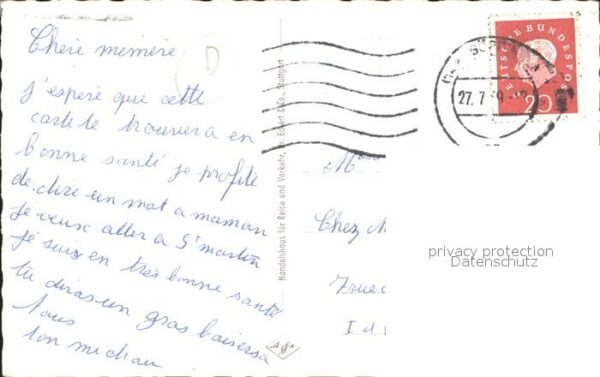 Chere mémère
j'espère que cette
carte te trouvera en
bonne santé je profite
de dire un mot a maman
je veux aller a St martin
je suis en très bonne santé
tu diras un gros baiser sa
tous
ton michau
Handelshaus für Reise und Verkehr, Stuttgart
DEUTSCHE BUNDESPOST
20
27.7
Mme
Chez M
I et
privacy protection
Datenschutz